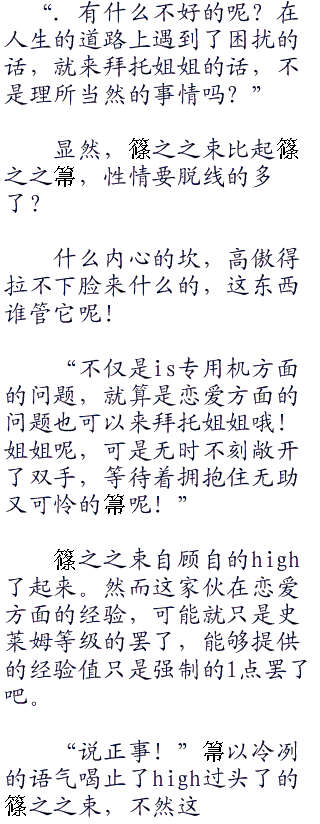 “．有什么不好的呢？在
人生的道路上遇到了困扰的
话，就来拜托姐姐的话，不
是理所当然的事情吗？”
显然，篠之之束比起篠
之之箒，性情要脱线的多
了？
什么内心的坎，高傲得
拉不下脸来什么的，这东西
谁管它呢！
“不仅是is专用机方面
的问题，就算是恋爱方面的
问题也可以来拜托姐姐哦！
姐姐呢，可是无时不刻敞开
了双手，等待着拥抱住无助
又可怜的箒呢！”
篠之之束自顾自的high
了起来。然而这家伙在恋爱
方面的经验，可能就只是史
莱姆等级的罢了，能够提供
的经验值只是强制的1点罢了
吧。
“说正事！”箒以冷冽
的语气喝止了high过头了的
篠之之束，不然这